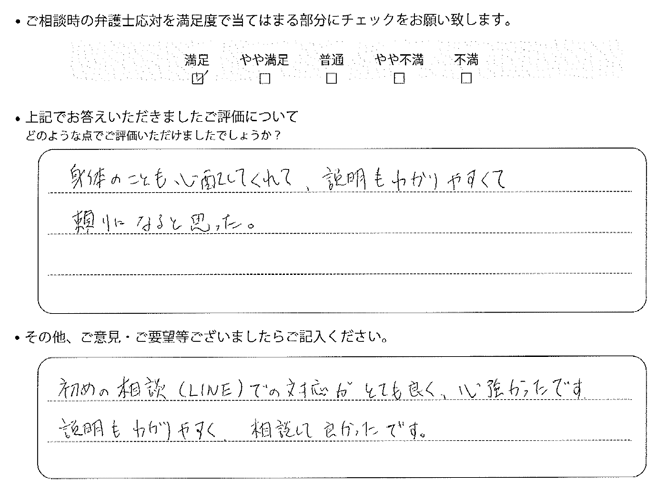 • ご相談時の弁護士応対を満足度で当てはまる部分にチェックをお願い致します。
満足 やや満足 普通 やや不満 不満
• 上記でお答えいただきましたご評価について
どのような点でご評価いただけましたでしょうか?
身体のことも心配してくれて、説明もわかりやすくて
頼りになると思った。
• その他、ご意見・ご要望等ございましたらご記入ください。
初めの相談(LINE)での対応がとても良く、心強かったです
説明もわかりやすく、相談して良かったです。